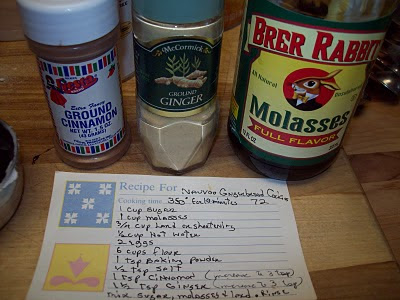 Extra Fancy
GROUND
CINNAMON
NET WT. 1.5 OZ.
McCormick
GROUND
GINGER
BRER RABBIT
All Natural
Molasses
FULL FLAVOR
Recipe For Nauvoo Gingerbread Cookies
Cooking time 350° for 10 minutes 72
1 cup sugar
1 cup molasses
3/4 cup Lard or shortening
1/2 cup Hot water
2 eggs
6 cups flour
1 tsp Baking Powder
1/2 tsp salt
1 tsp Cinnamon (increase to 3 tsp)
1 1/2 tsp Ginger (increase to 3 tsp)
mix sugar, molasses & lard